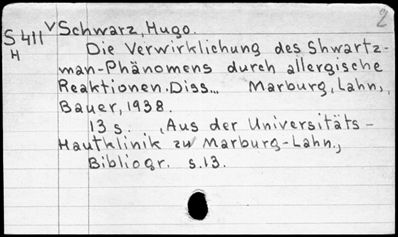 2
S 411 v Schwarz, Hugo.
H Die Verwirklichung des Shwartz-
man-Phänomens durch allergische
Reaktionen. Diss... Marburg, Lahn,
Bauer, 1938.
13 s. (Aus der Universitäts-
Hautklinik zu Marburg-Lahn.)
Bibliogr. s.13.